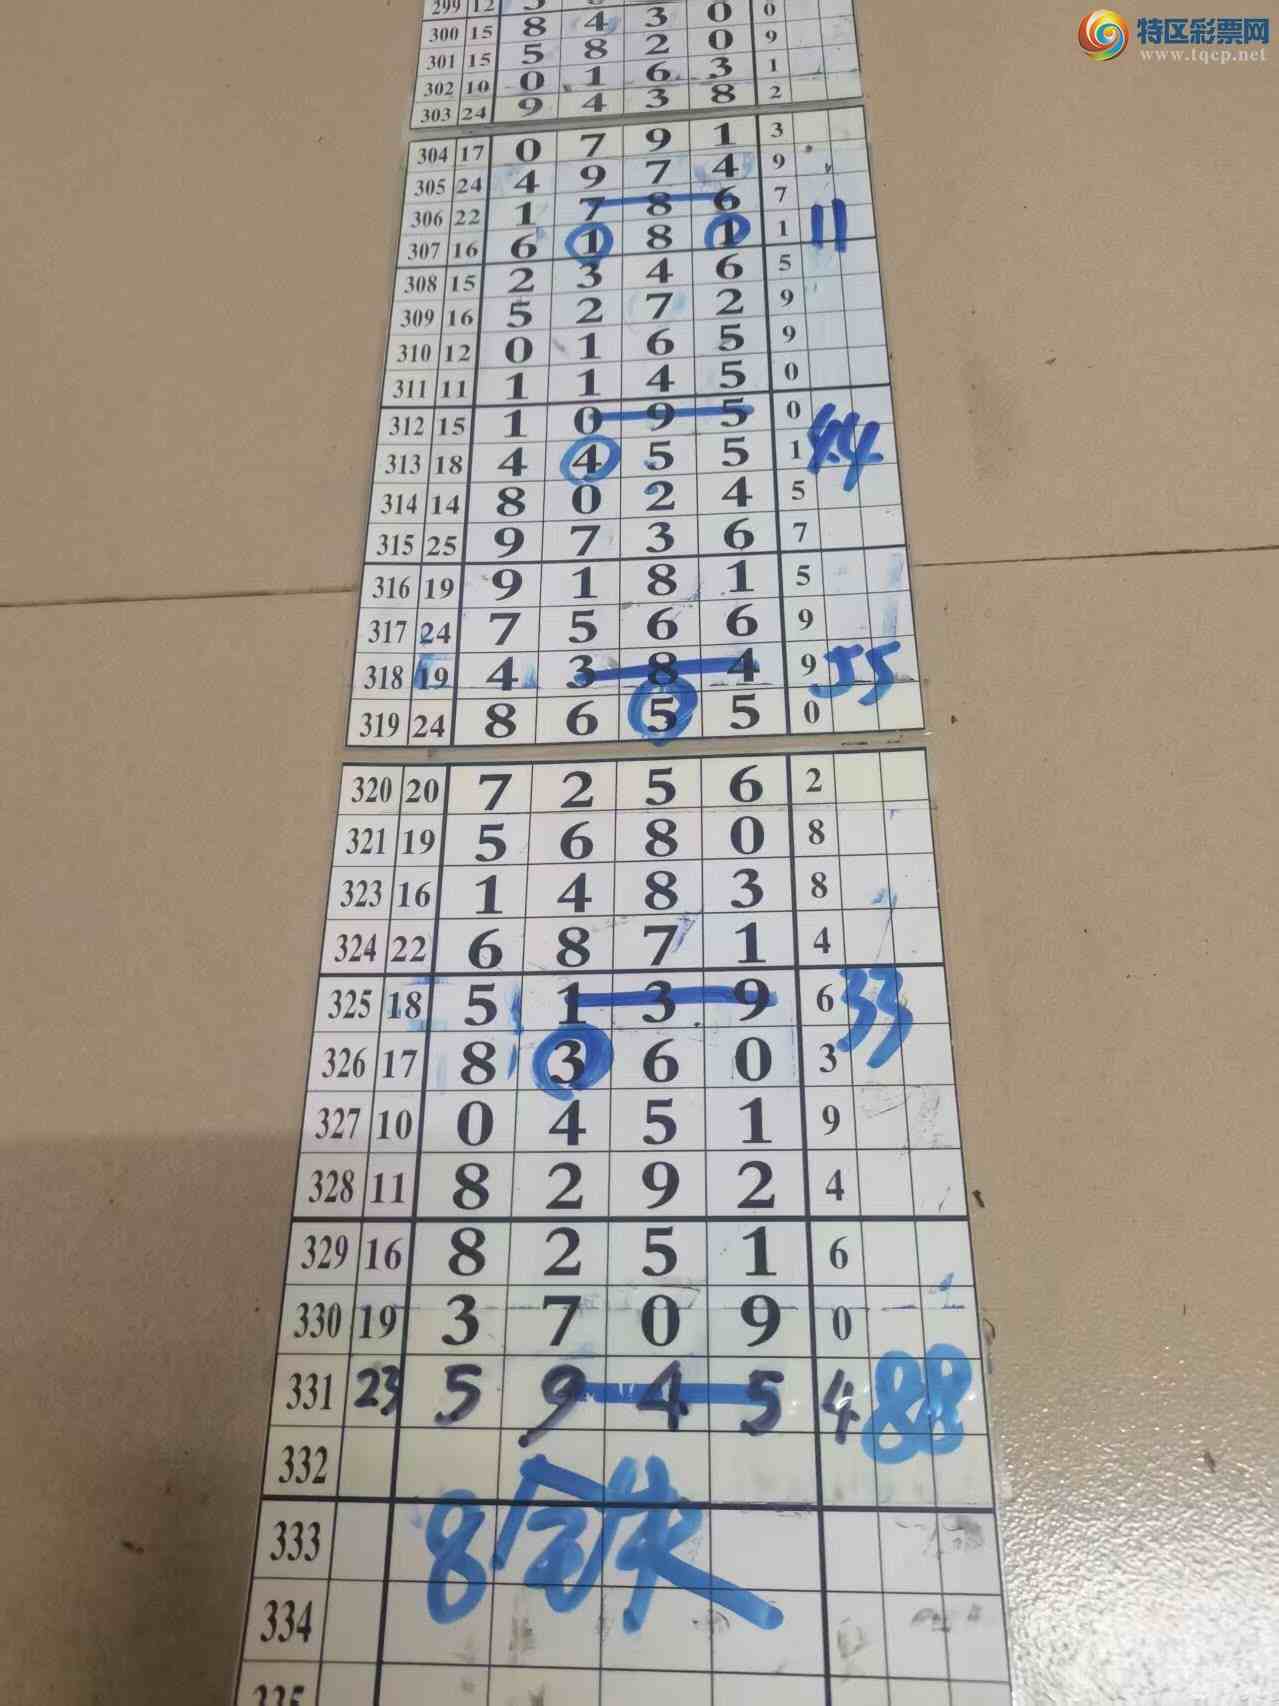 特区彩票网
www.tqcp.net
299 12
300 15 8 4 3 0 9
301 15 5 8 2 0
302 10 0 1 6 3 1
303 24 9 4 3 8 2
304 17 0 7 9 1 3
305 24 4 9 7 4 9
306 22 1 7 8 6 7
307 16 6 1 8 1 1 11
308 15 2 3 4 6 5
309 16 5 2 7 2 9
310 12 0 1 6 5 9
311 11 1 1 4 5 0
312 15 1 0 9 5 0
313 18 4 4 5 5 1 44
314 14 8 0 2 4 5
315 25 9 7 3 6 7
316 19 9 1 8 1 5
317 24 7 5 6 6 9
318 19 4 3 8 4 9 55
319 24 8 6 5 5 0
320 20 7 2 5 6 2
321 19 5 6 8 0 8
323 16 1 4 8 3 8
324 22 6 8 7 1 4
325 18 5 1 3 9 6 33
326 17 8 3 6 0 3
327 10 0 4 5 1 9
328 11 8 2 9 2 4
329 16 8 2 5 1 6
330 19 3 7 0 9 0
331 23 5 9 4 5 4 88
332
333 8
334
335